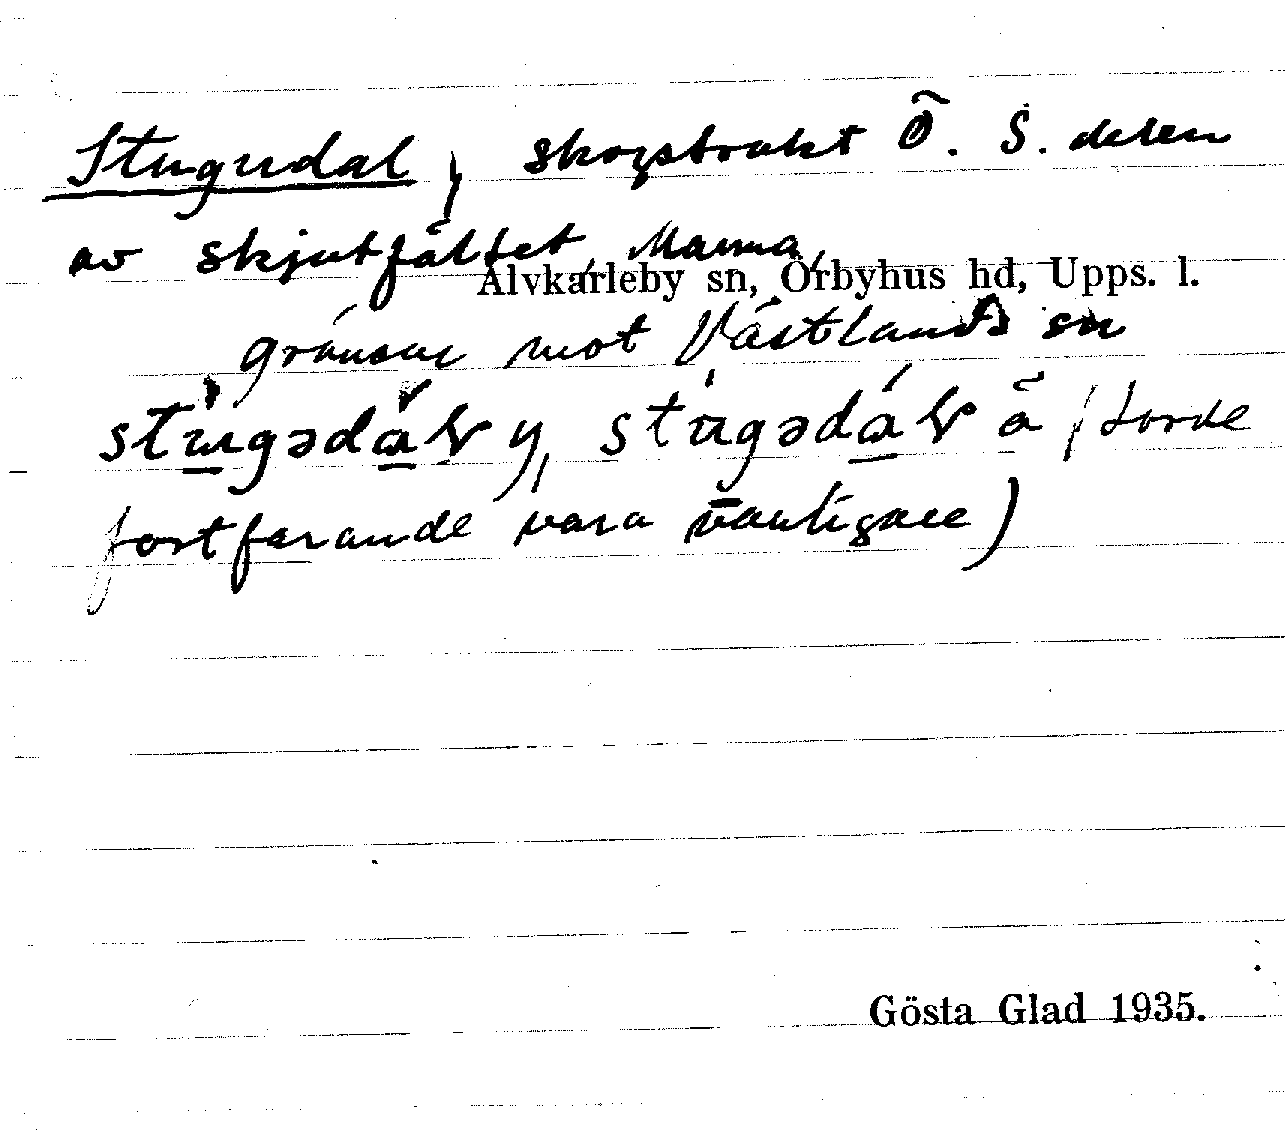 Stugudal, skogstrakt Ö. S. delen
av skjutfältet, Marma,
Älvkarleby sn, Örbyhus hd, Upps. l.
gränsar mot Västlands sn
y, å (torde
fortfarande vara vanligare)
Gösta Glad 1935.